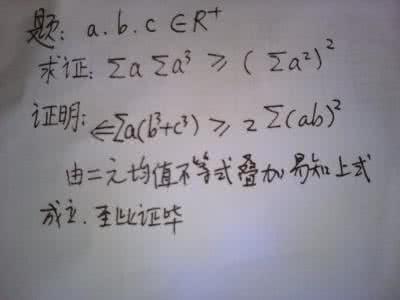 题: a.b.c ∈R⁺
求证: Σa Σa³ ≥ (Σa²)²
证明: ⇐Σa(b³+c³) ≥ 2Σ(ab)²
由二元均值不等式叠加易知上式
成立. 至此证毕